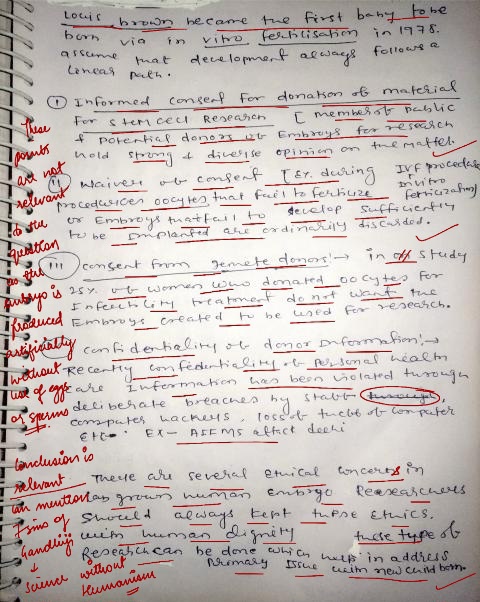 Louis brown became the first baby to be
born via in vitro fertilisation in 1978.
assume that development always follows a
Linear path.
① Informed consent for donation of material
For stem cell Research [ member of public
& potential donors of Embryos for research
hold strong & diverse opinion on the matter.
(ii) Waiver of consent [Ex. during IVF procedure
Invitro
fertilization)
procedures oocytes that fail to fertize
or Embroys that fail to develop sufficiently
to be Implanted are ordinarily discarded.
(iii) consent from gemete donors:→ in study
25% of women who donated oocytes for
Infectility treatment do not want the
Embroys created to be used for research.
Confidentiality of donor Information:→
Recently confedentiality of personal health
care Information has been violated through
deliberate breaches by staff through,
computer hackers. loss of theft of computer
Etc. Ex- AIIMS attact delhi
These are several ethical concerts in
Lab grown human embryo Researchers
Should always kept these ethics.
with human dignity these type of
Research can be done which help in address
Primary Issue with new child born.
These
points
are not
relevant
to the
question
as the
embryo is
produced
artificially
without
use of eggs
or sperms
Conclusion is
relevant
can mention
7 sins of
Gandhiji
↓
Science without
Humanism